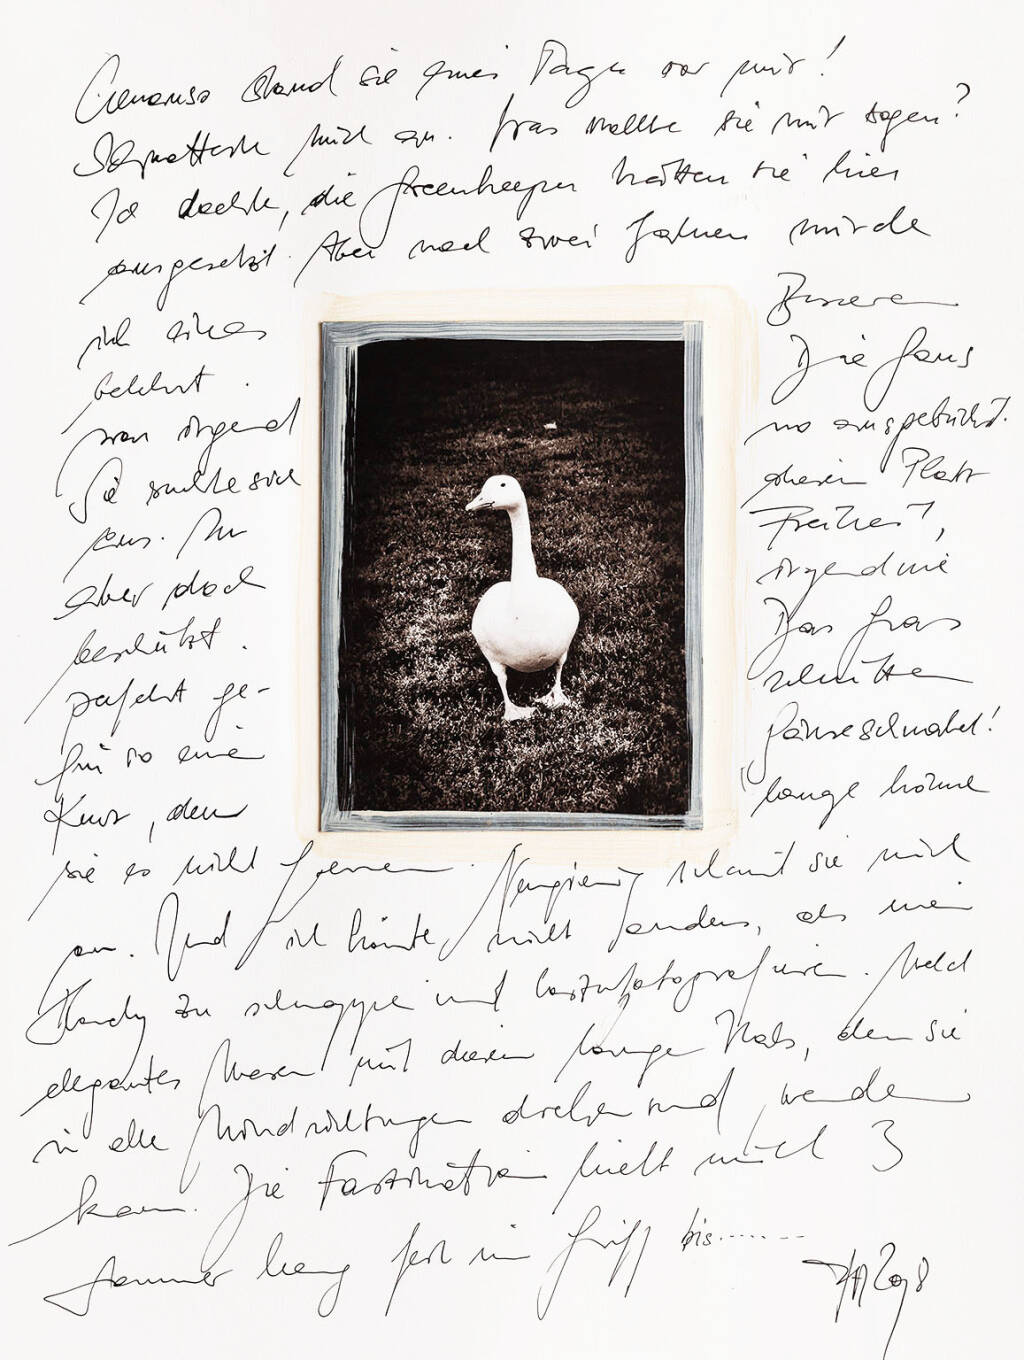 Genauso stand sie eines Tages vor mir!
Schnatterte mich an. Was wollte sie mir sagen?
Ich dachte, die Greenkeeper hätten sie hier
ausgesetzt. Aber nach zwei Jahren wurde
ich eines Besseren
belehrt. Die Gans
war irgend wo ausgebüchst.
Sie suchte sich diesen Platz
aus. In Freiheit,
aber doch irgendwie
beschützt. Das Gras
perfekt ge- schnitten
für so eine Gänseschnabel!
Kurz, denn lange Halme
sie nicht Neugierig schaut sie mich
an. Und ich konnte nicht anders, als mein
Handy zu schnappen und loszufotografieren. Welch
elegantes Wesen mit diesem langen Hals, den sie
in alle Windrichtungen drehen und wenden
kann. Die Faszination hielt mich 3
Sommer lang fest im Griff bis.......